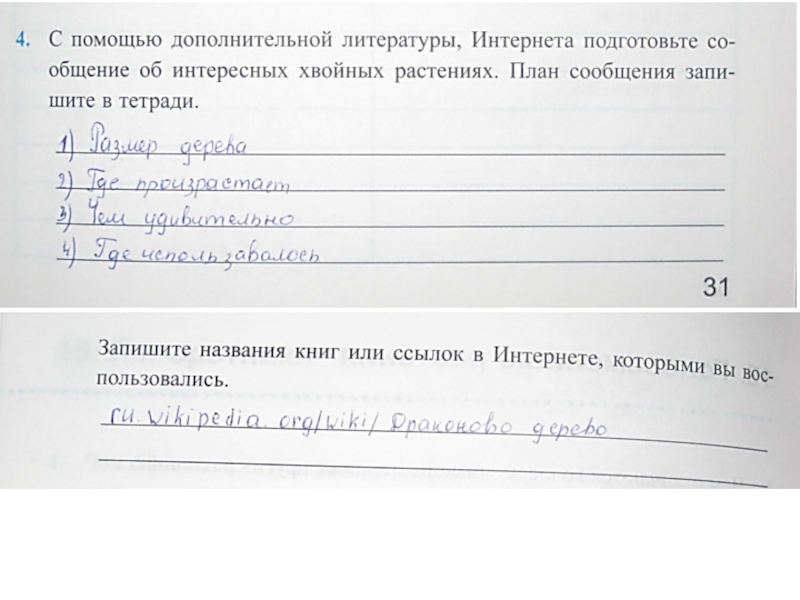 4. С помощью дополнительной литературы, Интернета подготовьте со-
общение об интересных хвойных растениях. План сообщения запи-
шите в тетради.
1) Размер дерева
2) Где произрастает
3) Чем удивительно
4) Где использавалось
31
Запишите названия книг или ссылок в Интернете, которыми вы вос-
пользовались.
ru. wikipedia. org/wiki/ Драконово дерево